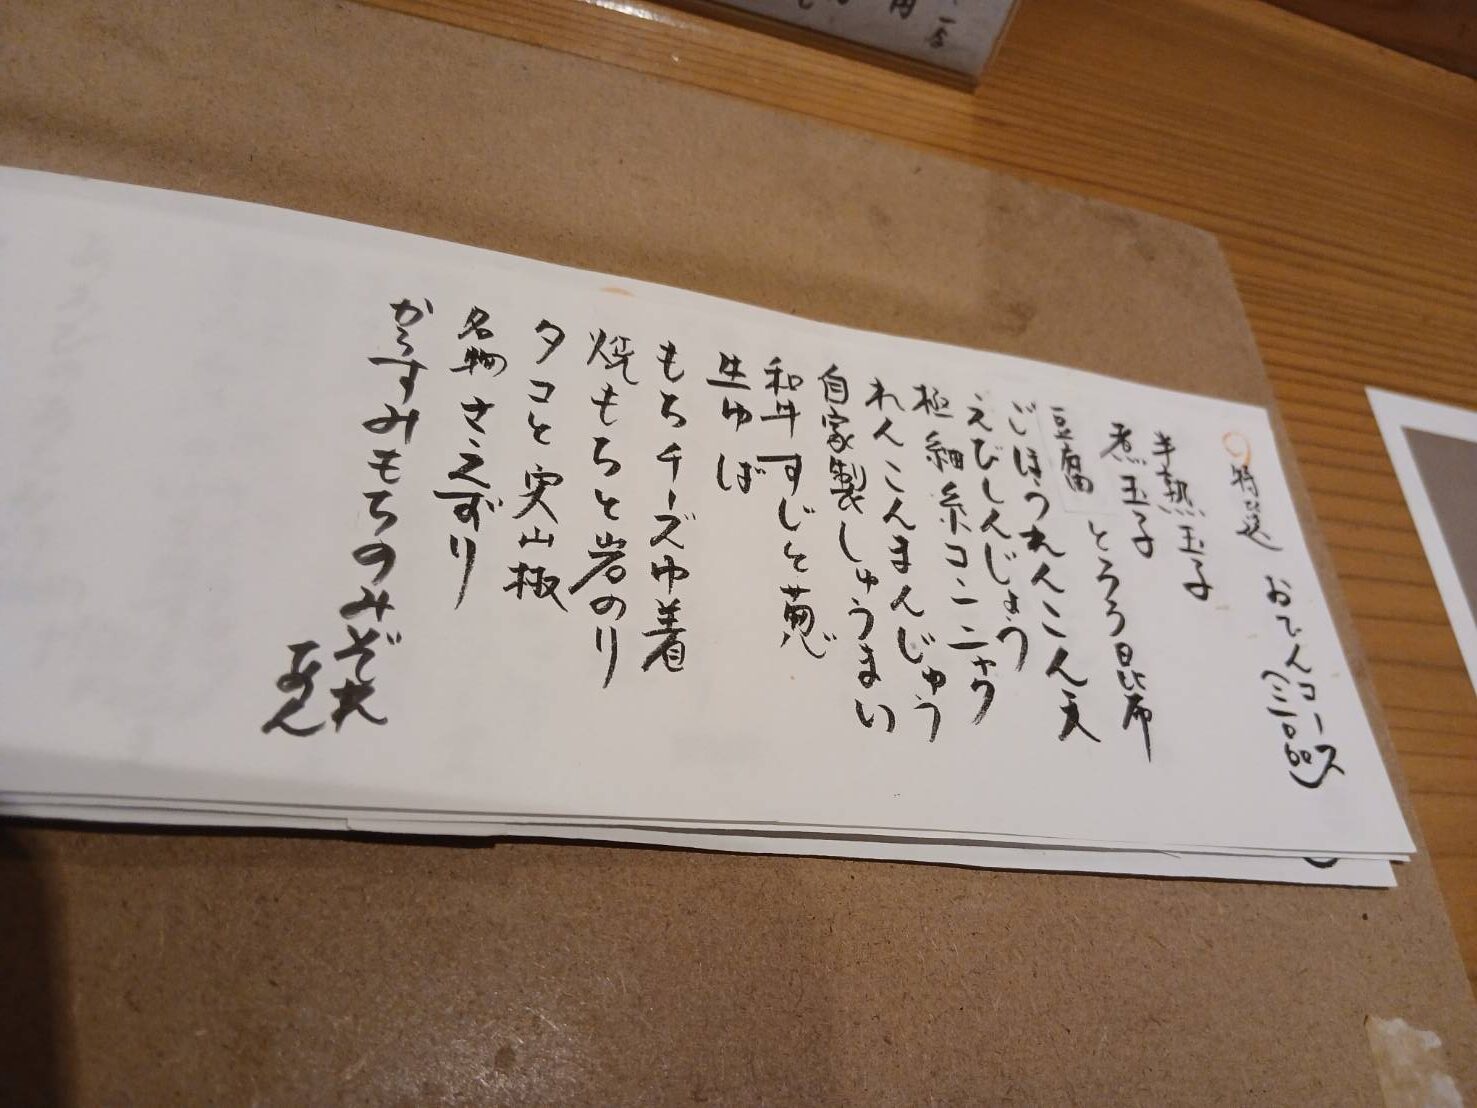 特選 おでんコース
半熟玉子
煮玉子
豆腐 とろろ昆布
ごぼうれんこん天
えびしんじょう
極細糸コンニャク
れんこんまんじゅう
自家製しゅうまい
和牛すじと葱
生ゆば
もちチーズ巾着
焼もちと岩のり
タコと実山椒
名物 さえずり
からすみもちのみぞれ
あん
円